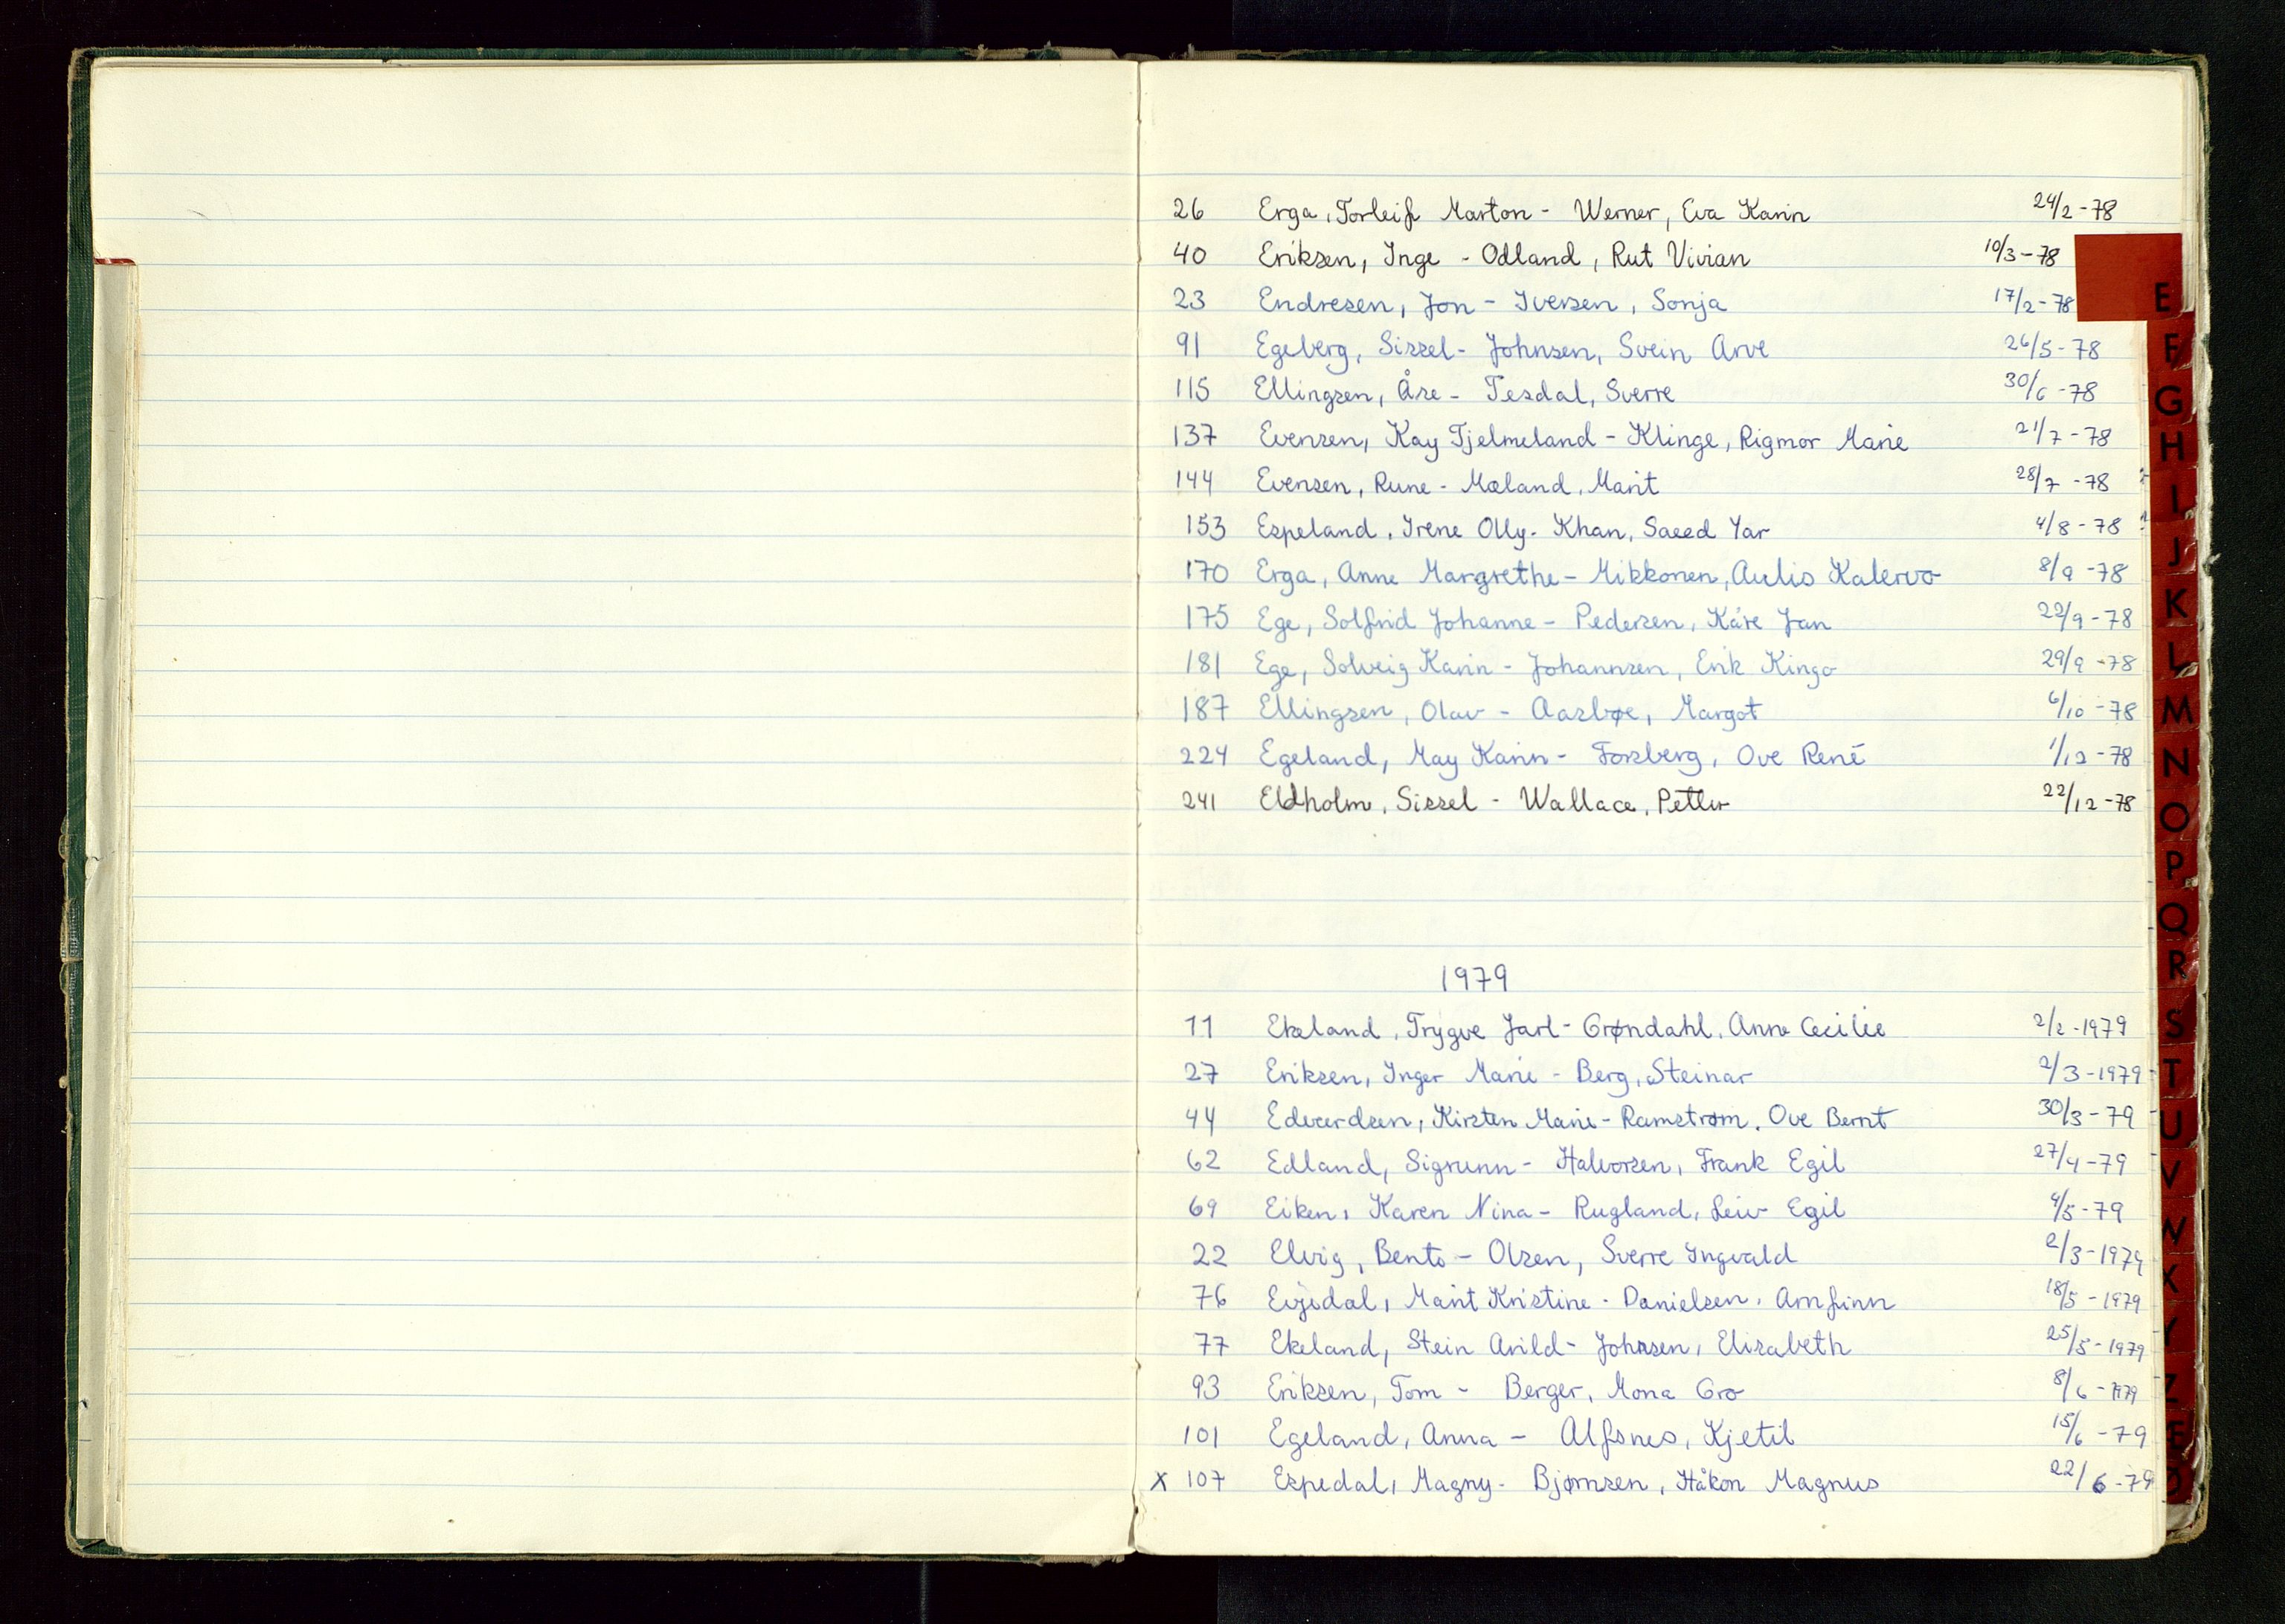 26 Erga, Torleif Marton - Werner, Eva Karin 24/2-78
40 Eriksen, Inge - Odland, Rut Vivian 10/3-78
23 Endresen, Jon - Iversen, Sonja 17/2-78
91 Egeberg, Sissel - Johnsen, Svein Arve 26/5-78
115 Ellingsen, Åse - Tesdal, Sverre 30/6-78
137 Evensen, Kay Tjelmeland - Klinge, Rigmor Marie 21/7-78
144 Evensen, Rune - Mæland, Marit 28/7-78
153 Espeland, Irene Olly - Khan, Saeed Yar 4/8-78
170 Erga, Anne Margrethe - Mikkonen, Aulis Kalervo 8/9-78
175 Ege, Solfrid Johanne - Pedersen, Kåre Jan 22/9-78
181 Ege, Solveig Karin - Johannsen, Erik Kingo 29/9-78
187 Ellingsen, Olav - Aasbøe, Margot 6/10-78
224 Egeland, May Karin - Forsberg, Ove René 1/12-78
241 Eldholm, Sissel - Wallace, Petter 22/12-78
1979
11 Ekeland, Trygve Jarl - Grøndahl, Anne Cecilie 2/2-1979
27 Eriksen, Inger Marie - Berg, Steinar 2/3-1979
44 Edvardsen, Kirsten Marie - Ramstrøm, Ove Bernt 30/3-79
62 Edland, Sigrunn - Halvorsen, Frank Egil 27/4-79
69 Eiken, Karen Nina - Rugland, Leiv Egil 4/5-79
22 Elvig, Bente - Olsen, Sverre Ingvald 2/3-1979
76 Evjodal, Marit Kristine - Danielsen, Arnfinn 18/5-1979
77 Ekeland, Stein Arild - Johnsen, Elisabeth 25/5-1979
93 Eriksen, Tom - Berger, Mona Gro 8/6-1979
101 Egeland, Anna - Alfsnes, Kjetil 15/6-79
x 107 Espedal, Magny - Bjørnsen, Håkon Magnus 22/6-79
E
F
G
H
I
J
K
L
M
N
O
P
Q
R
S
T
U
V
W
X
Y
Z
Æ
Ø